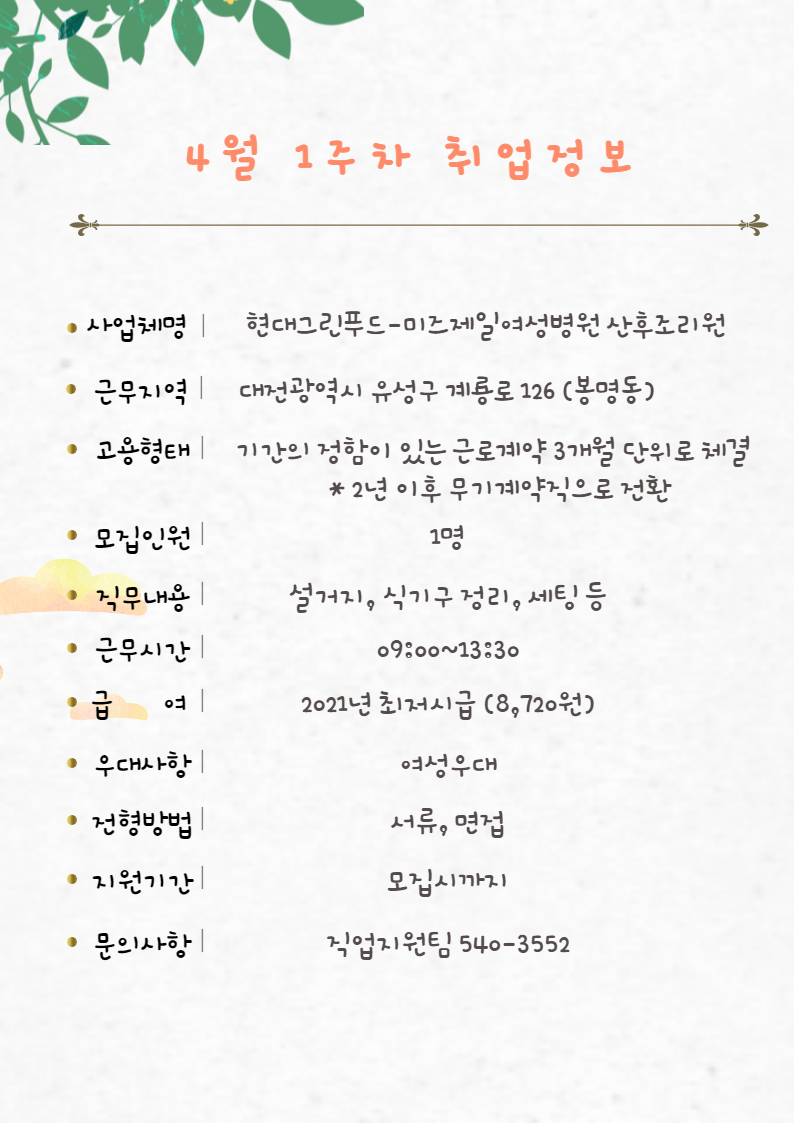 4월 1주차 취업정보
사업체명 | 현대그린푸드-미즈제일여성병원 산후조리원
근무지역 | 대전광역시 유성구 계룡로 126 (봉명동)
고용형태 | 기간의 정함이 있는 근로계약 3개월 단위로 체결
* 2년 이후 무기계약직으로 전환
모집인원 | 1명
직무내용 | 설거지, 식기구 정리, 세팅 등
근무시간 | 09:00~13:30
급 여 | 2021년 최저시급 (8,720원)
우대사항 | 여성우대
전형방법 | 서류, 면접
지원기간 | 모집시까지
문의사항 | 직업지원팀 540-3552